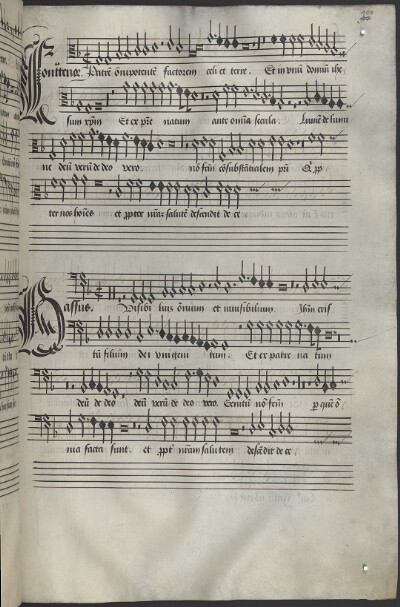 Patrē om̄ipotentē factorem celi et terre. Et in vnū domīn ihe
sum xp̄m Et ex p̄re natum ante om̄ia secula. Lumē de lumi
ne deū verū de deo vero. nō fc̄m cōsubstātialem
ter nos hoīes et propter nr̄am salutē descendit de ce
Bassus. visibi lium om̄ium et inuisibilium.
tū filium dei vnigeni tum. Et ex patre na tum
deū de deo deū verū de deo vero. Genitū nō fc̄m p quē ō
nia facta sunt. et propt nr̄am salutem descēdit de ce